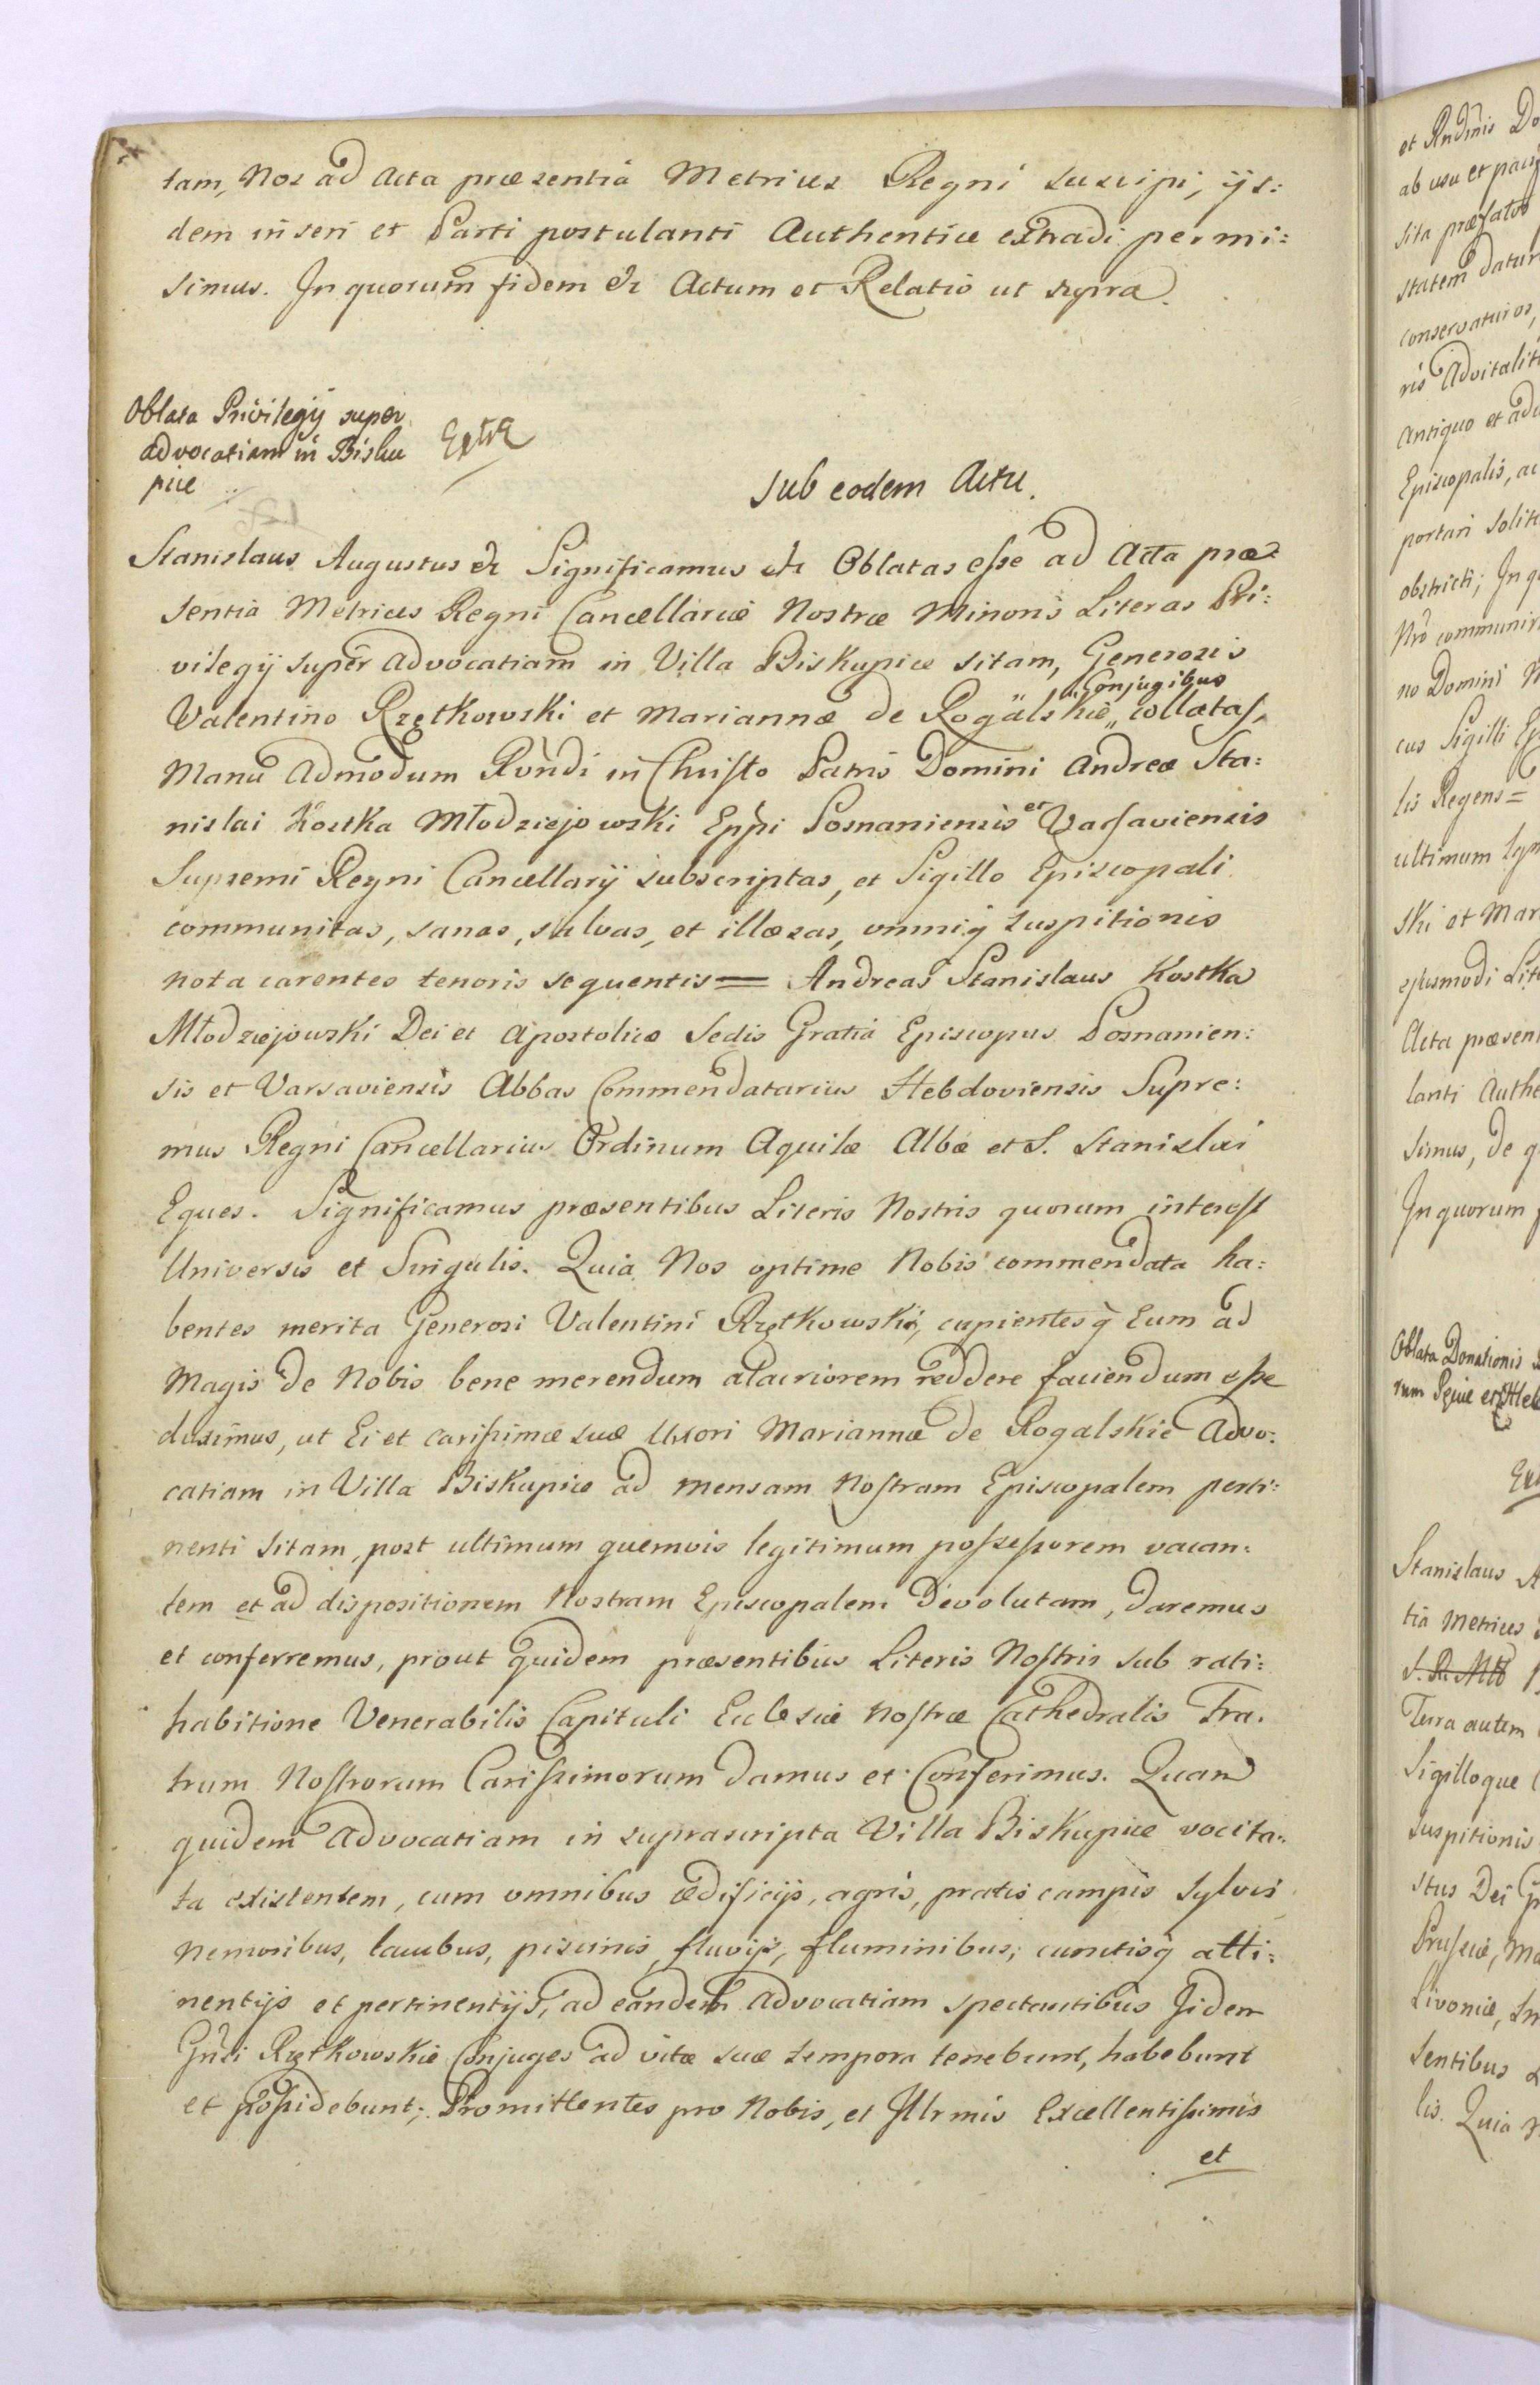 tam, Nos ad Acta præsentia Metrices Regni suscipi, ijs:
dem inseri et Parti postulanti Authentice extradi permi:
simus. In quorum fidem &c Actum et Relatio ut supra.
Oblata Privilegij super
advocatiam in Bisku
pice
Extra
Sub eodem Actu.
Stanislaus Augustus &c Significamus &c Oblatas esse ad Acta præ:
sentia Metrices Regni Cancellariæ Nostræ Minoris Literas Pri:
vilegij super Advocatiam in Villa Biskupice sitam, Generosis
Conjugibus
Valentino Rzętkowski et Mariannæ de Rogalskie „ collatas,
Manu Admodum Rvndi in Christo Patris Domini Andreæ Sta:
nislai Kostka Młodziejowski Eppi Posnaniensis et Varsaviensis
Supremi Regni Cancellarij subscriptas, et Sigillo Episcopali
communitas, sanas, salvas, et illæsas, omniq suspitionis
nota carentes tenoris sequentis = Andreas Stanislaus Kostka
Młodziejowski Dei et Apostolicæ Sedis Gratia Episcopus Posnanien:
sis et Varsaviensis Abbas Commendatarius Hebdoviensis Supre:
mus Regni Cancellarius Ordinum Aquilæ Albæ et S. Stanislai
Eques. Significamus præsentibus Literis Nostris quorum interest
Universis et Singulis. Quia Nos optime Nobis commendata ha:
bentes merita Generosi Valentini Rzętkowski, cupientesq Eum ad
Magis de Nobis bene merendum alacriorem reddere faciendum esse
duximus, ut Ei et carissimæ suæ Uxori Mariannæ de Rogalskie Advo:
catiam in Villa Biskupice ad mensam Nostram Episcopalem perti:
nenti sitam, post ultimum quemvis legitimum possessorem vacan:
tem et ad dispositionem Nostram Episcopalem Devolutam, daremus
et conferremus, prout quidem præsentibus Literis Nostris sub rati:
habitione Venerabilis Capituli Ecclesiæ Nostræ Cathedralis Fra:
trum Nostrorum Carissimorum damus et Conferimus. Quam
quidem Advocatiam in suprascripta Villa Biskupice vocita:
ta existentem, cum omnibus ædificijs, agris, pratis campis sylvis
Nemoribus, lacubus, piscinis, fluvijs, fluminibus, cunctisq atti:
nentijs et pertinentijs, ad eandem Advocatiam spectantibus Iidem
Gnsi Rzętkowskie Conjuges ad vitæ suæ tempora tenebunt, habebunt
et possidebunt; Promittentes pro Nobis, et Illrmis Excellentissimis
et
et Rndmis
ab usu et
sita præfatos
statem datur
conservaturos,
ris
Antiquo et
Episcopalis, ac
portari
obstricti;
Nro
no Domini
cus Sigilli
lis Regens =
ultimum
ski et Mar
ejusmodi
Acta præsen
lanti Authe
simus, de
In quorum
Oblata Donationis
Stanislaus
tia Metrices
Terra autem
Sigilloque
suspitionis
stus Dei
Livoniæ,
sentibus
lis. Quia